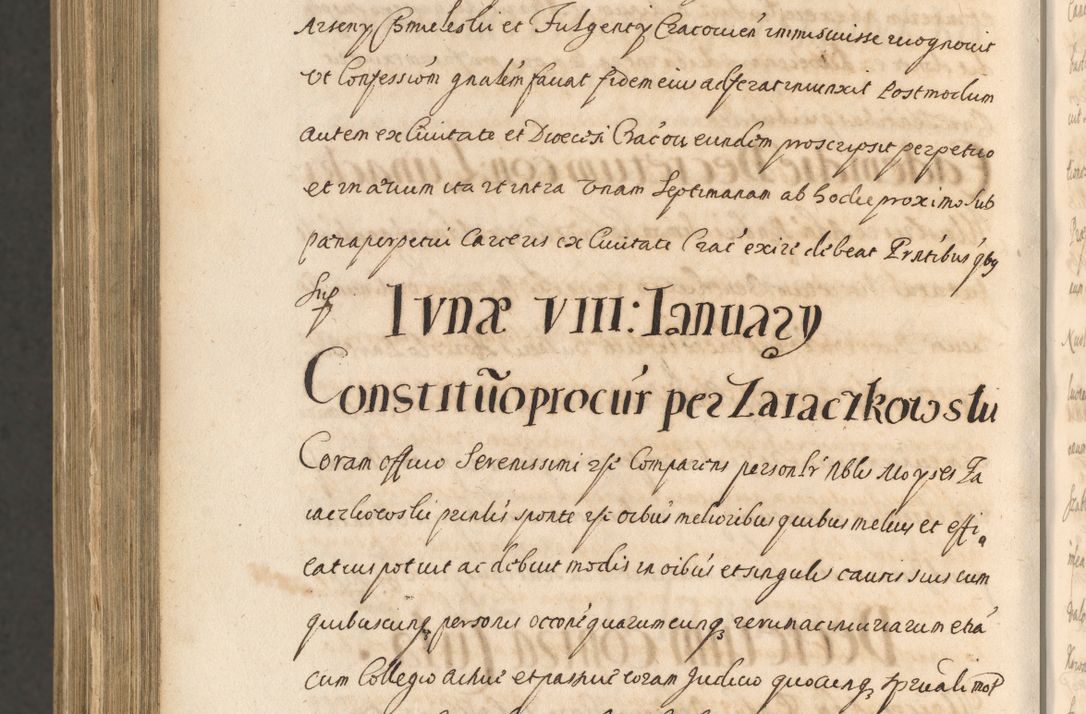 Arseny Chmielesky et Fulgenty Cracovień immiscuisse recognovit
ut Confessioḿ gnalém faciat fidem eius ad ferat iniunxit Postmodum
autem ex Civitate et Dioecesi Cracov eundem proscripsit perpetuo
ita ut intra Unam Septimanam ab hodie proximo sub
pæna perpetui Carceris ex Civitate Crać exire debeat Prńtibus qby
Sup
Lunæ VIII: January
Constitũo procúr per Zaiaczkowski
Coram officio Serenissimi etc Comparens personlr̃ Nblis Moyses Za
iaczkowski prńtis sponte etc oībus melioribus quibus melius et effi
catius potuit ac debuit modis in oībus et singulis causis suis cum
quibuscunq personis occoné quarumcunq rerum ac iniuriarum etiá
cum Collegio active et passive coram Judicio quocunq spruali